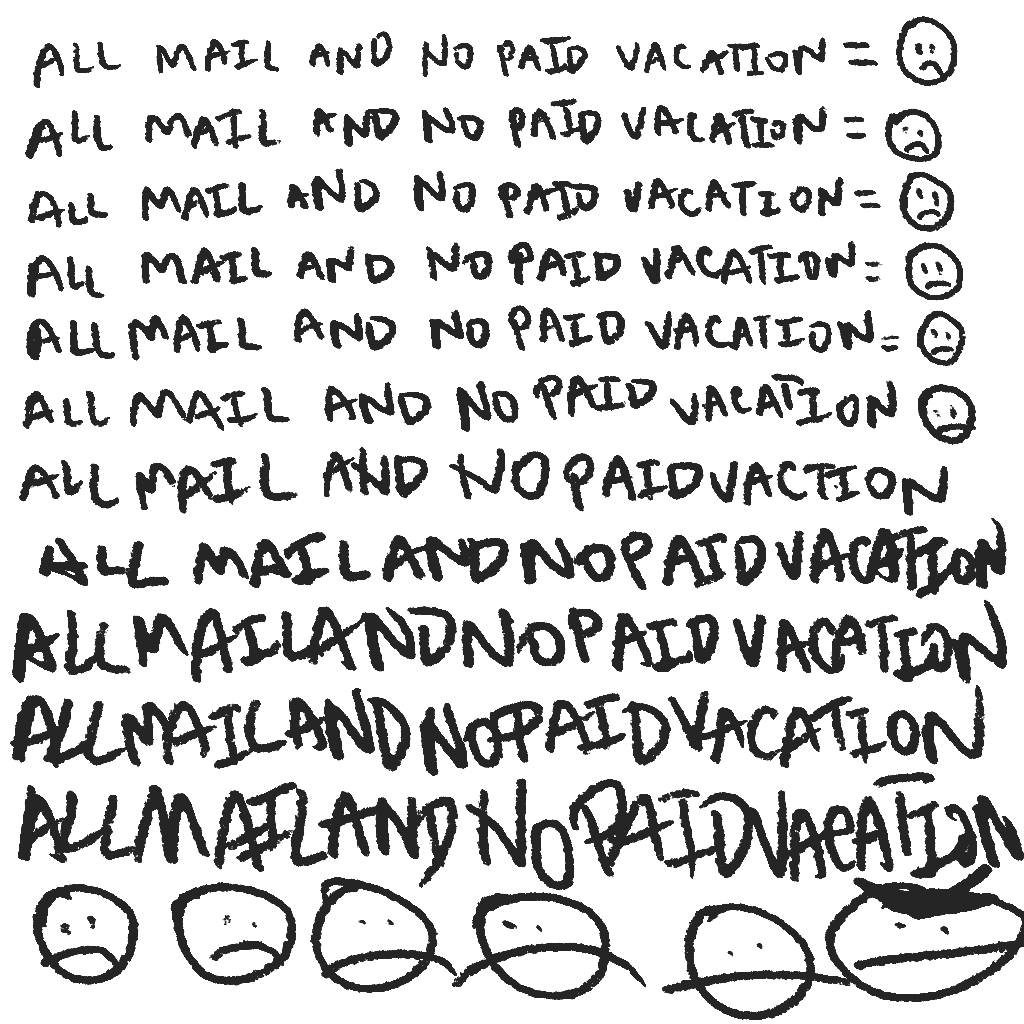 ALL MAIL AND NO PAID VACATION =
ALL MAIL AND NO PAID VACATION =
ALL MAIL AND NO PAID VACATION =
ALL MAIL AND NO PAID VACATION =
ALL MAIL AND NO PAID VACATION =
ALL MAIL AND NO PAID VACATION
ALL MAIL AND NO PAID VACTION
ALL MAIL AND NO PAID VACATION
ALL MAIL AND NO PAID VACATION
ALL MAIL AND NO PAID VACATION
ALL MAIL AND NO PAID VACATION